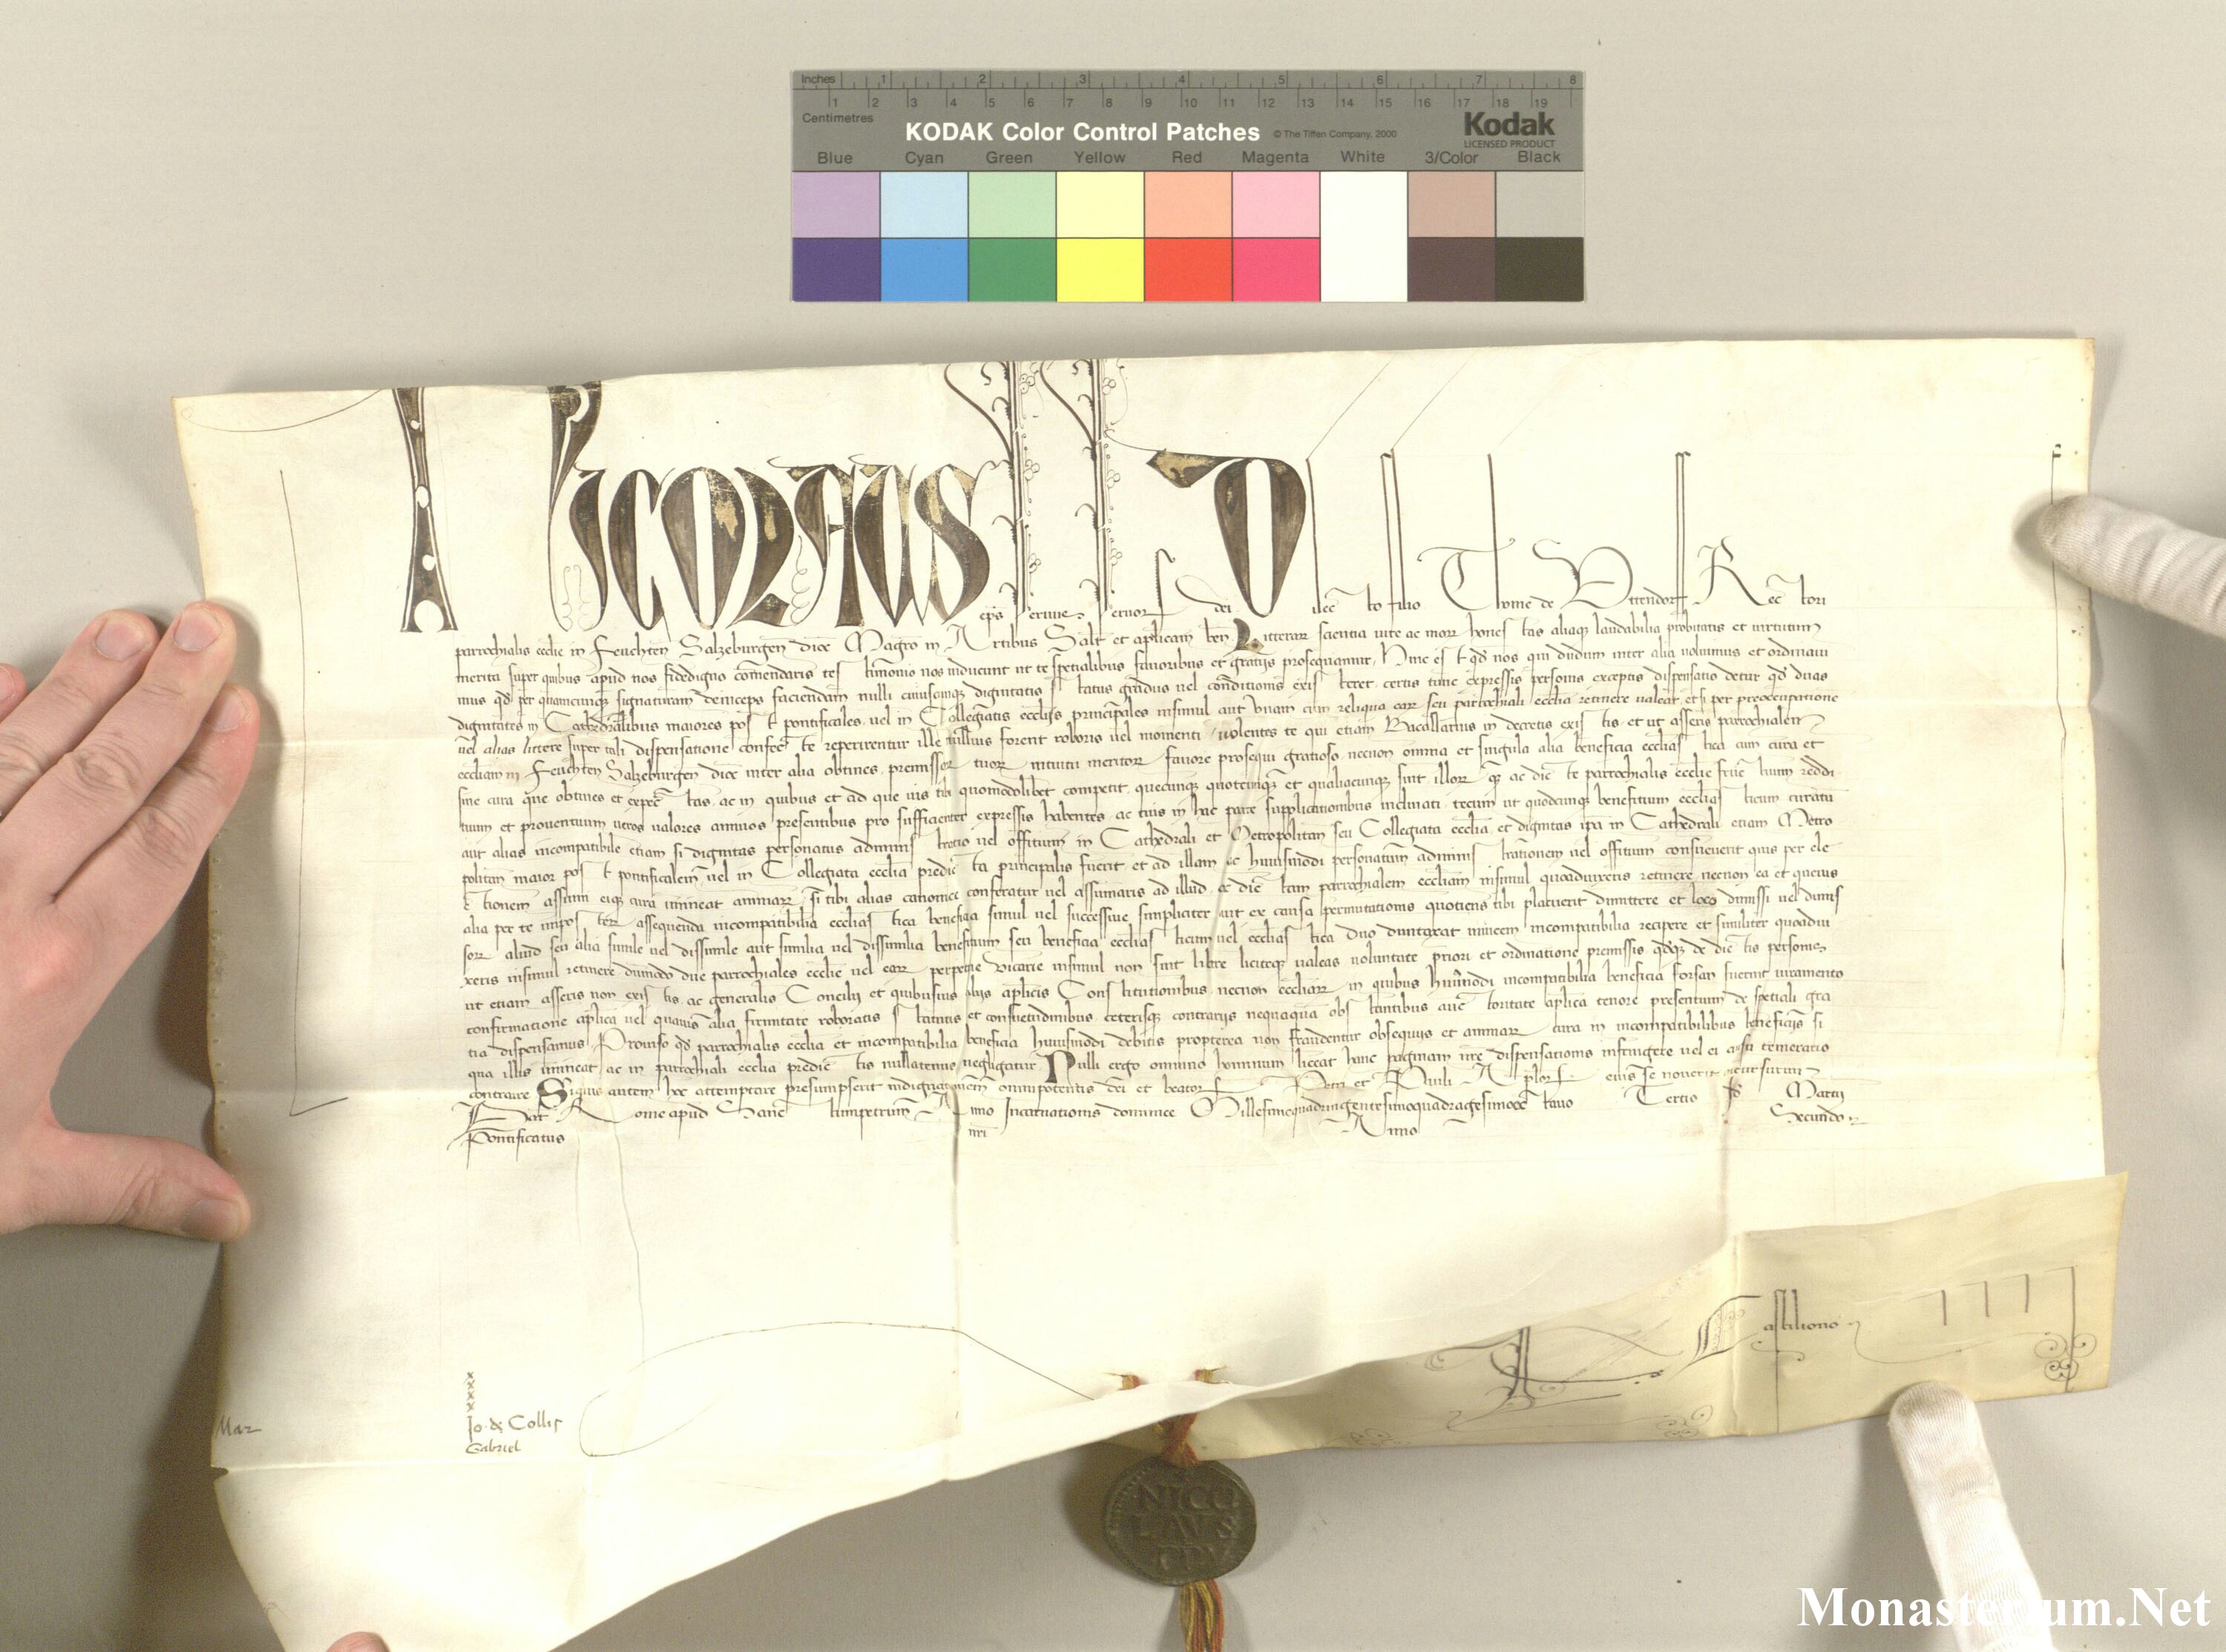 Inches 1 2 3 4 5 6 7 8
1 2 3 4 5 6 7 8 9 10 11 12 13 14 15 16 17 18 19
Centimetres
KODAK Color Control Patches © The Tiffen Company, 2000 Kodak
LICENSED PRODUCT
Blue Cyan Green Yellow Red Magenta White 3/Color Black
NICOLAUS eps servus servor dei Dilecto filio Thome de Rectori
parrochialis ecclie in Feuchten Salzeburgen dioc Magro in Artibus Salt et aplicam ben Litterar scientia vite ac mor honestas aliaq laudabilia probitatis et virtutum
merita super quibus apud nos fidedigno comendaris testimonio nos inducunt ut te spetialibus favoribus et gratijs prosequamur Hinc est qd nos qui dudum inter alia voluimus et ordinavi
mus qd per quamcunq signaturam deinceps faciendam nulli cuiuscunq dignitatis status gradus vel conditionis existeret certis tunc expressis personis exceptis dispensatio detur qd duas
dignitates in Cathedralibus maiores post pontificales vel in Collegiatis ecclijs principales insimul aut unam cum reliqua ear seu parrochiali ecclia retinere valeat et si per preoccupatione
vel alias littere super tali dispensatione confecte reperirentur ille nullius forent roboris vel momenti volentes te qui etiam Bacallarius in decretis existis et ut asseris parrochialem
eccliam in Feuchten Salzeburgen dioc inter alia obtines premissor tuor intuitu meritor favore prosequi gratioso necnon omnia et singula alia beneficia ecclastica cum cura et
sine cura que obtines et expectas ac in quibus et ad que ius tibi quomodolibet competit quecunq quotcunq et qualiacunq sint illor q ac dicte parrochialis ecclie fructuum reddi
tuum et proventuum veros valores annuos presentibus pro sufficienter expressis habentes ac tuis in hac parte supplicationibus inclinati tecum ut quodcunq benefitium ecclasticum curatu
aut alias incompatibile etiam si dignitas personatus administratio vel offitium in Cathedrali et Metropolitan seu Collegiata ecclia et dignitas ipa in Cathedrali etiam Metro
politan maior post pontificalem vel in Collegiata ecclia predicta principalis fuerit et ad illam ac huiusmodi personatum administrationem vel offitium consueverit quis per ele
ctionem assumi eiq cura imineat animar si tibi alias canonice conferatur vel assumaris ad illud ac dictam parrochialem eccliam insimul quoaduixeris retinere necnon ea et quevis
alia per te imposter assequenda incompatibilia ecclastica beneficia simul vel successive simpliciter aut ex causa permutationis quotiens tibi placuerit dimittere et loco dimissi vel dimis
sor aliud seu alia simile vel dissimile aut similia vel dissimilia benefitium seu beneficia ecclasticum vel ecclastica duo duntaxat invicem incompatibilia recipere et similiter quoadui
xeris insimul retinere dumodo due parrochiales ecclie vel ear perpetue vicarie insimul non sint libere liciteq valeas voluntate priori et ordinatione premissis qdq de dictis personis
ut etiam asseris non existis ac generalis Concilij et quibusvis alijs aplicis Constitutionibus necnon eccliar in quibus hmodi incompatibilia beneficia forsan fuerint iuramento
confirmatione aplica vel quavis alia firmitate roboratis statutis et consuetudinibus ceterisq contrarijs nequaqua obstantibus auctoritate aplica tenore presentium de spetiali gra
tia dispensamus Proviso qd parrochialis ecclia et incompatibilia beneficia huiusmodi debitis propterea non fraudentur obsequijs et animar cura in incompatibilibus beneficijs si
qua illis imineat ac in parrochiali ecclia predictis nullatenus negligatur Nulli ergo omnino hominum liceat hanc paginam nre dispensationis infringere vel ei ausu temerario
contraire Siquis autem hoc attemptare presumpserit indignationem omnipotentis dei et beator Petri et Pauli Aplor eius se noverit incursurum
Dat Rome apud Sanctumpetrum Anno Incarnationis dominice Millesimoquadringentesimoquadragesimooctavo Tertio Martij
Pontificatus nri Anno Secundo
Castiliono
A
Mar
x
x
x
x
Jo. de Collis
Gabriel
NICO
LAVS
PP V
Monasterium.Net